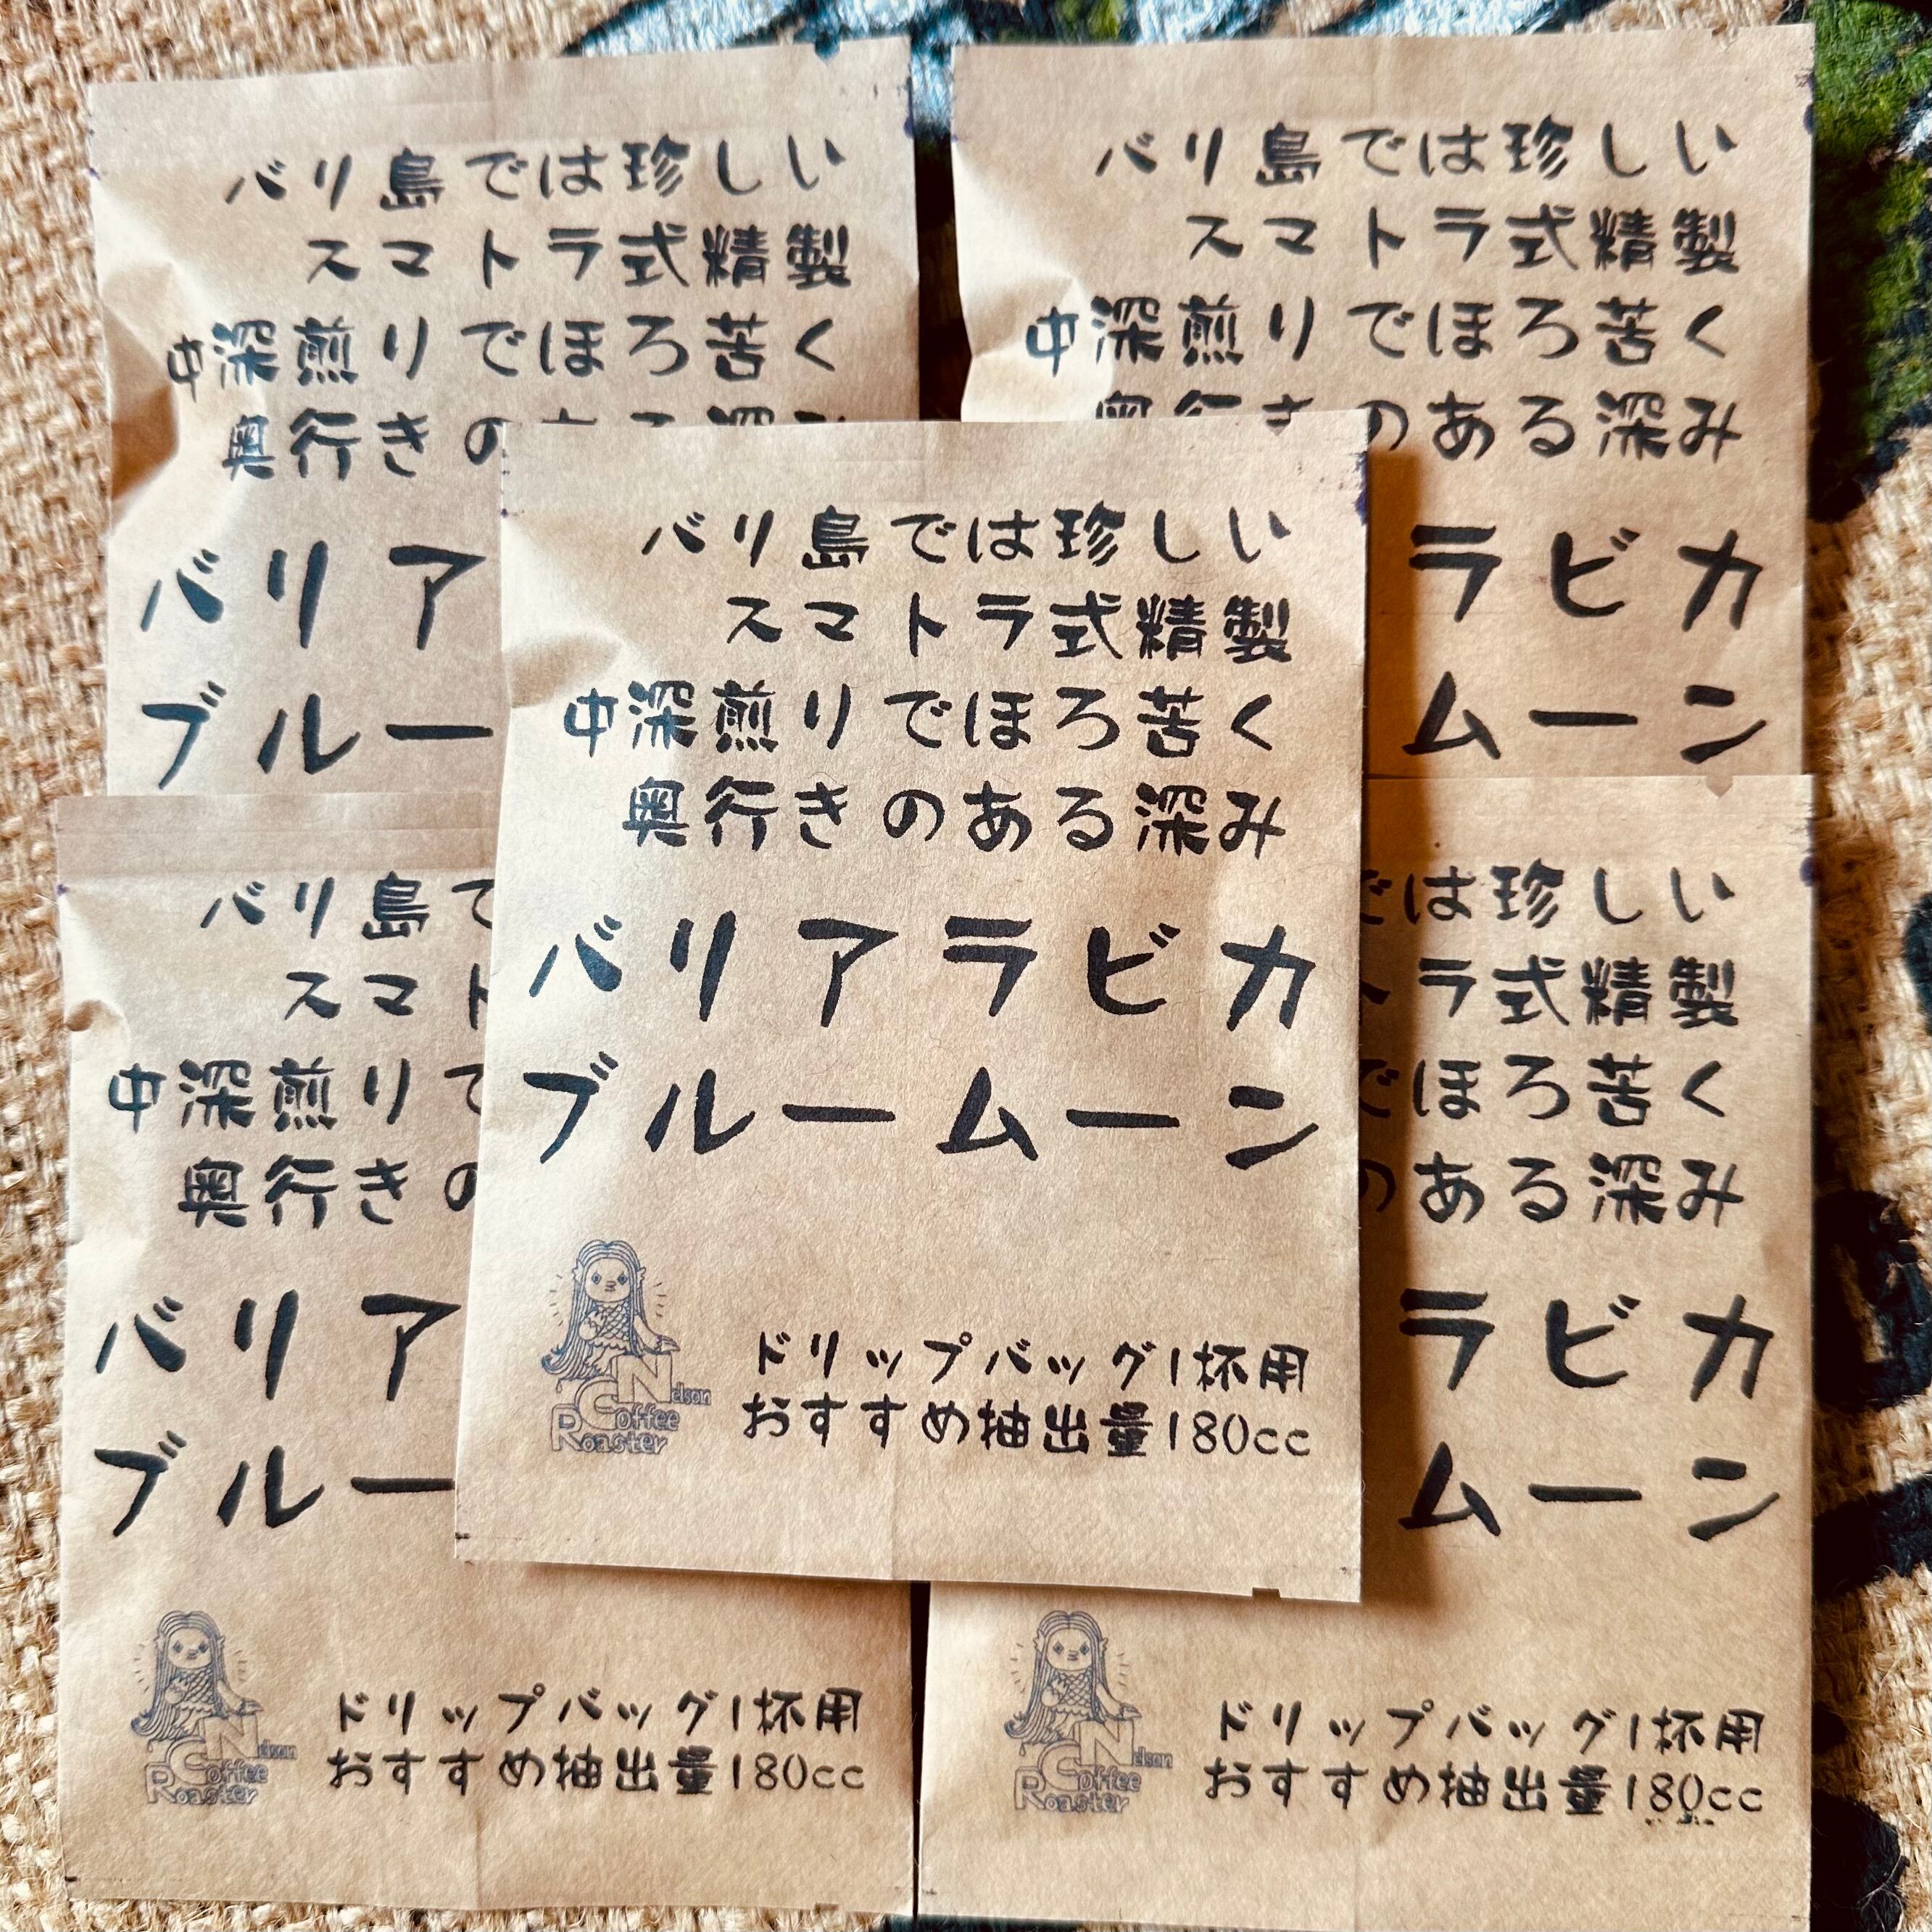 バリ島では珍しい
スマトラ式精製
中深煎りでほろ苦く
奥行きの
バリア
ブルー
バリ島では珍しい
スマトラ式精製
中深煎りでほろ苦く
奥行きのある深み
ラビカ
ムーン
バリ島では珍しい
スマトラ式精製
中深煎りでほろ苦く
奥行きのある深み
バリアラビカ
ブルームーン
Nelson
Coffee
Roaster
ドリップバッグ1杯用
おすすめ抽出量180cc
バリ島で
スマト
中深煎りで
奥行きの
バリア
ブルー
Nelson
Coffee
Roaster
ドリップバッグ1杯用
おすすめ抽出量180cc
では珍しい
ラ式精製
でほろ苦く
のある深み
ラビカ
ムーン
Nelson
Coffee
Roaster
ドリップバッグ1杯用
おすすめ抽出量180cc